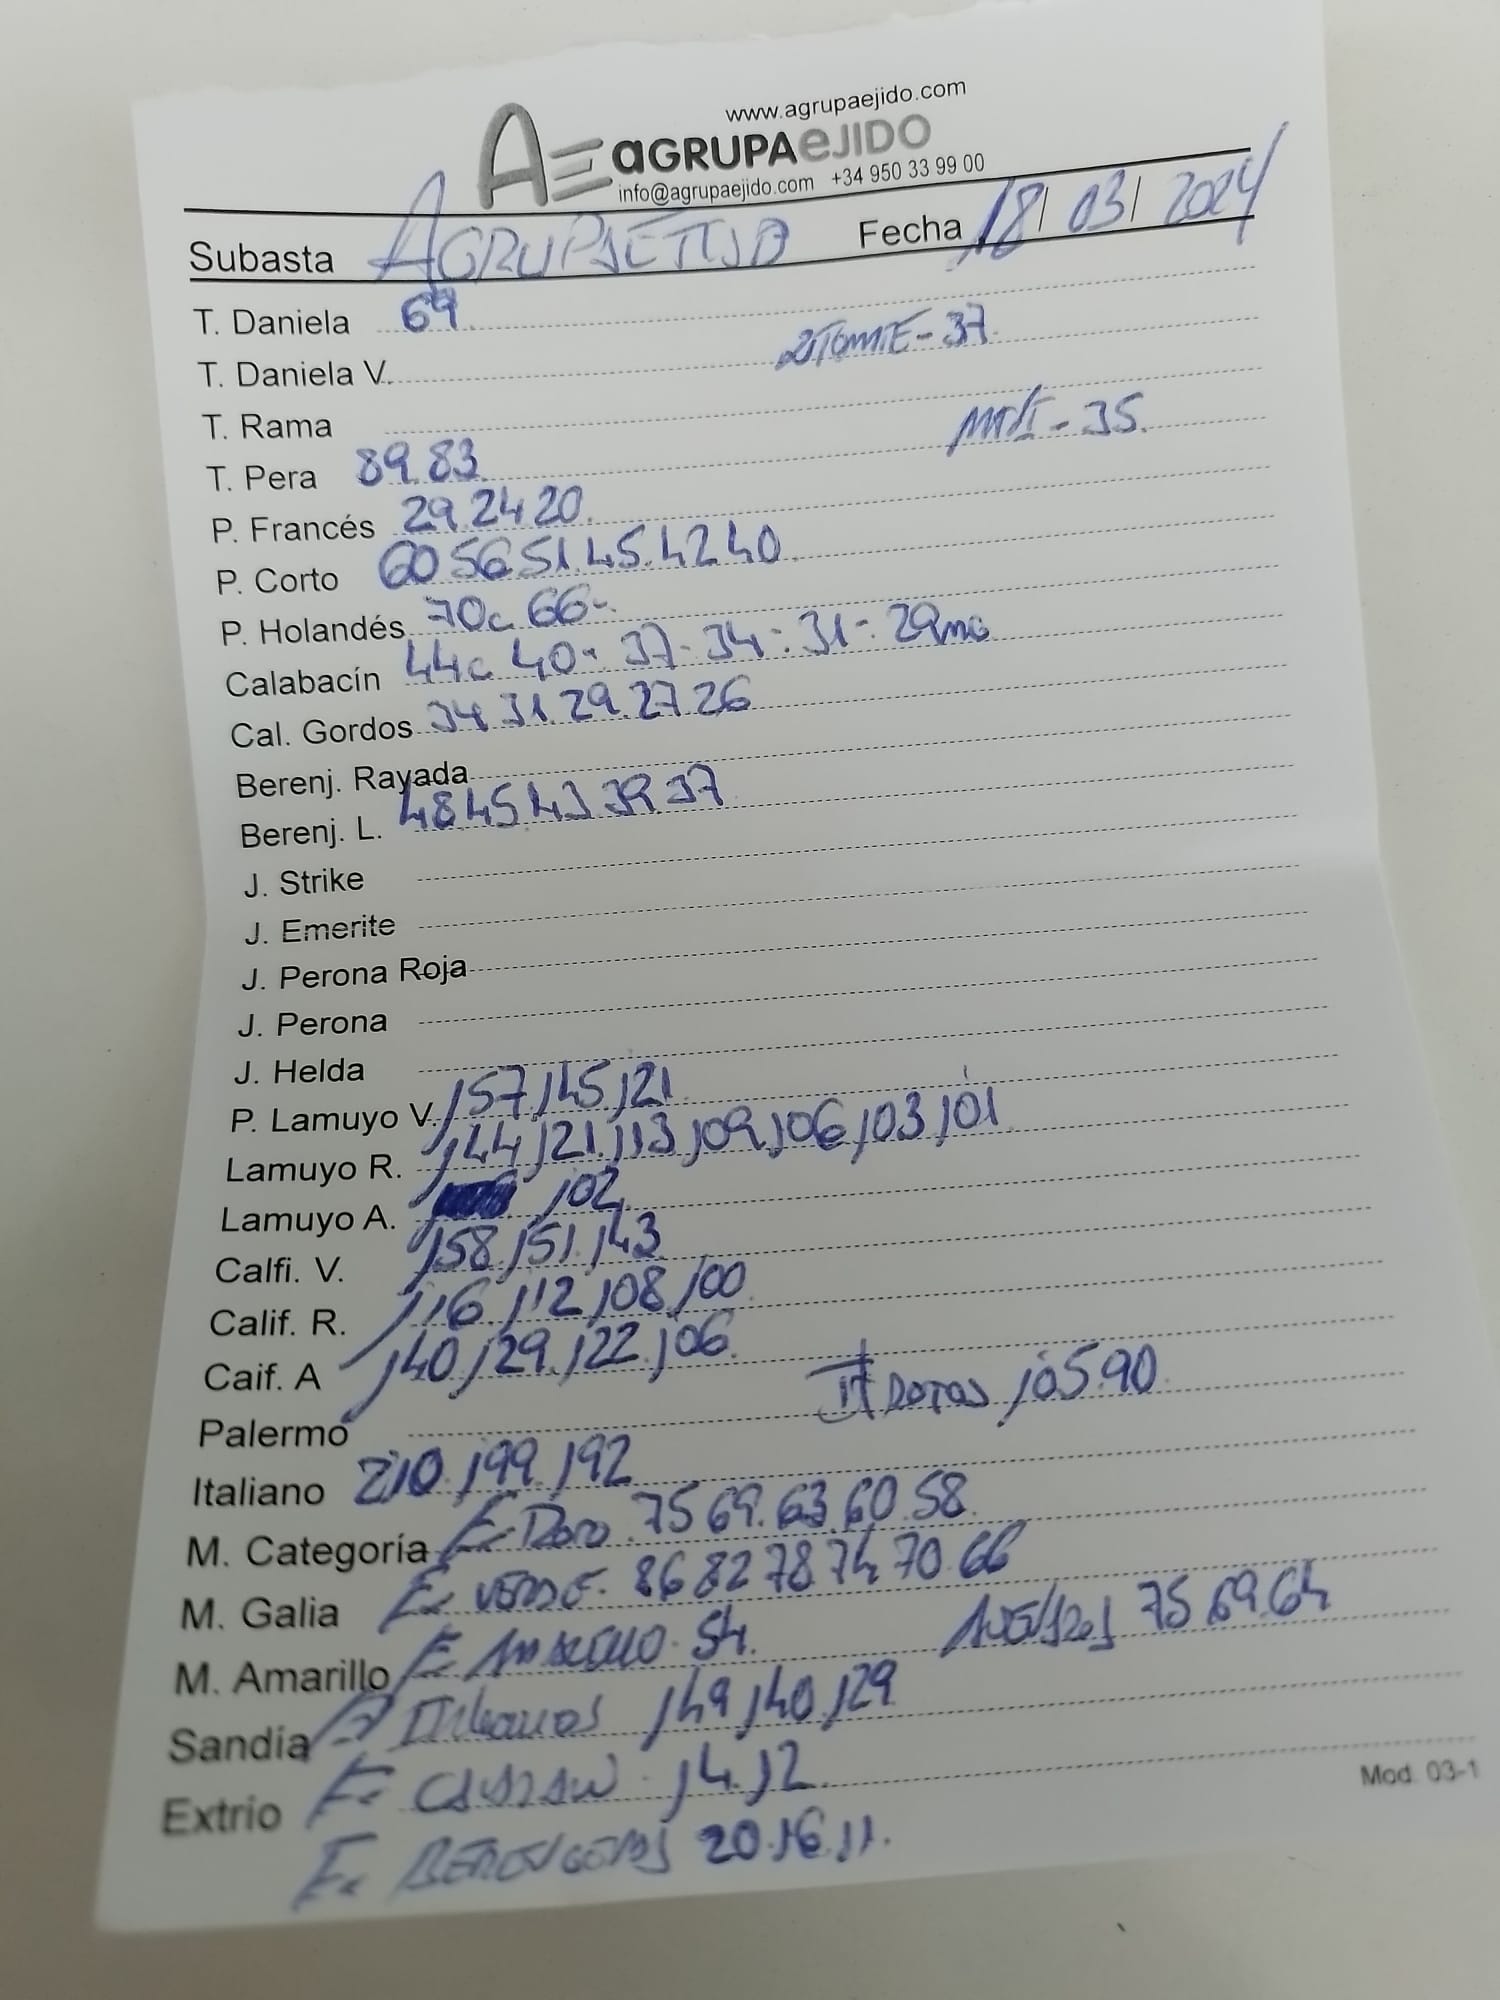 www.agrupaejido.com
AE aGRUPAeJIDO
info@agrupaejido.com +34 950 33 99 00
Subasta AGRUPAEJIDO Fecha 18/03/2024
T. Daniela 69
T. Daniela V. - 37
T. Rama
T. Pera 89.83 - 35
P. Francés 29.24 20
P. Corto 60 56 51.45.42 40
P. Holandés 70c 66-
Calabacín 44c 40- 37- 34- 31- 29
Cal. Gordos 34.31.29.27.26
Berenj. Rayada
Berenj. L. 48 45 43 39.37
J. Strike
J. Emerite
J. Perona Roja
J. Perona
J. Helda
P. Lamuyo V. 157.145.121
Lamuyo R. 144.121.113.109.106.103.101
Lamuyo A. 102
Calfi. V. 158.151.143
Calif. R. 116.112.108.100
Caif. A 140.129.122.106
Palermo II ROJOS 105.90
Italiano 210.199.192
M. Categoría E. ROJO 75 69.63.60.58
M. Galia E. VERDE 86 82 78 74 70.66
M. Amarillo E. AMARILLO 54. 75 69.64
Sandía E. ITALIANOS 149.140.129
Extrio E. 14.12
E. 20.16.11.
Mod. 03-1